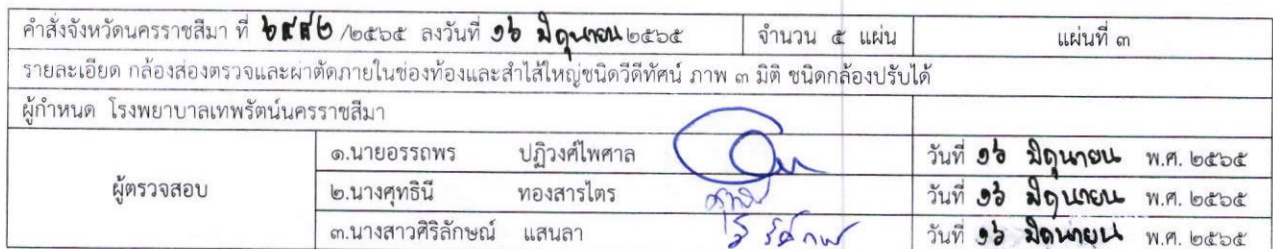 คำสั่งจังหวัดนครราชสีมา ที่ /๒๕๖๕ ลงวันที่ ๑๖ มิถุนายน ๒๕๖๕ จำนวน ๕ แผ่น แผ่นที่ ๓
รายละเอียด กล้องส่องตรวจและผ่าตัดภายในช่องท้องและลำไส้ใหญ่ชนิดวีดีทัศน์ ภาพ ๓ มิติ ชนิดกล้องปรับได้
ผู้กำหนด โรงพยาบาลเทพรัตน์นครราชสีมา
ผู้ตรวจสอบ
๑.นายอรรถพร ปฏิวงศ์ไพศาล วันที่ ๑๖ มิถุนายน พ.ศ. ๒๕๖๕
๒.นางศุทธินี ทองสารไตร วันที่ ๑๖ มิถุนายน พ.ศ. ๒๕๖๕
๓.นางสาวศิริลักษณ์ แสนลา วันที่ ๑๖ มิถุนายน พ.ศ. ๒๕๖๕